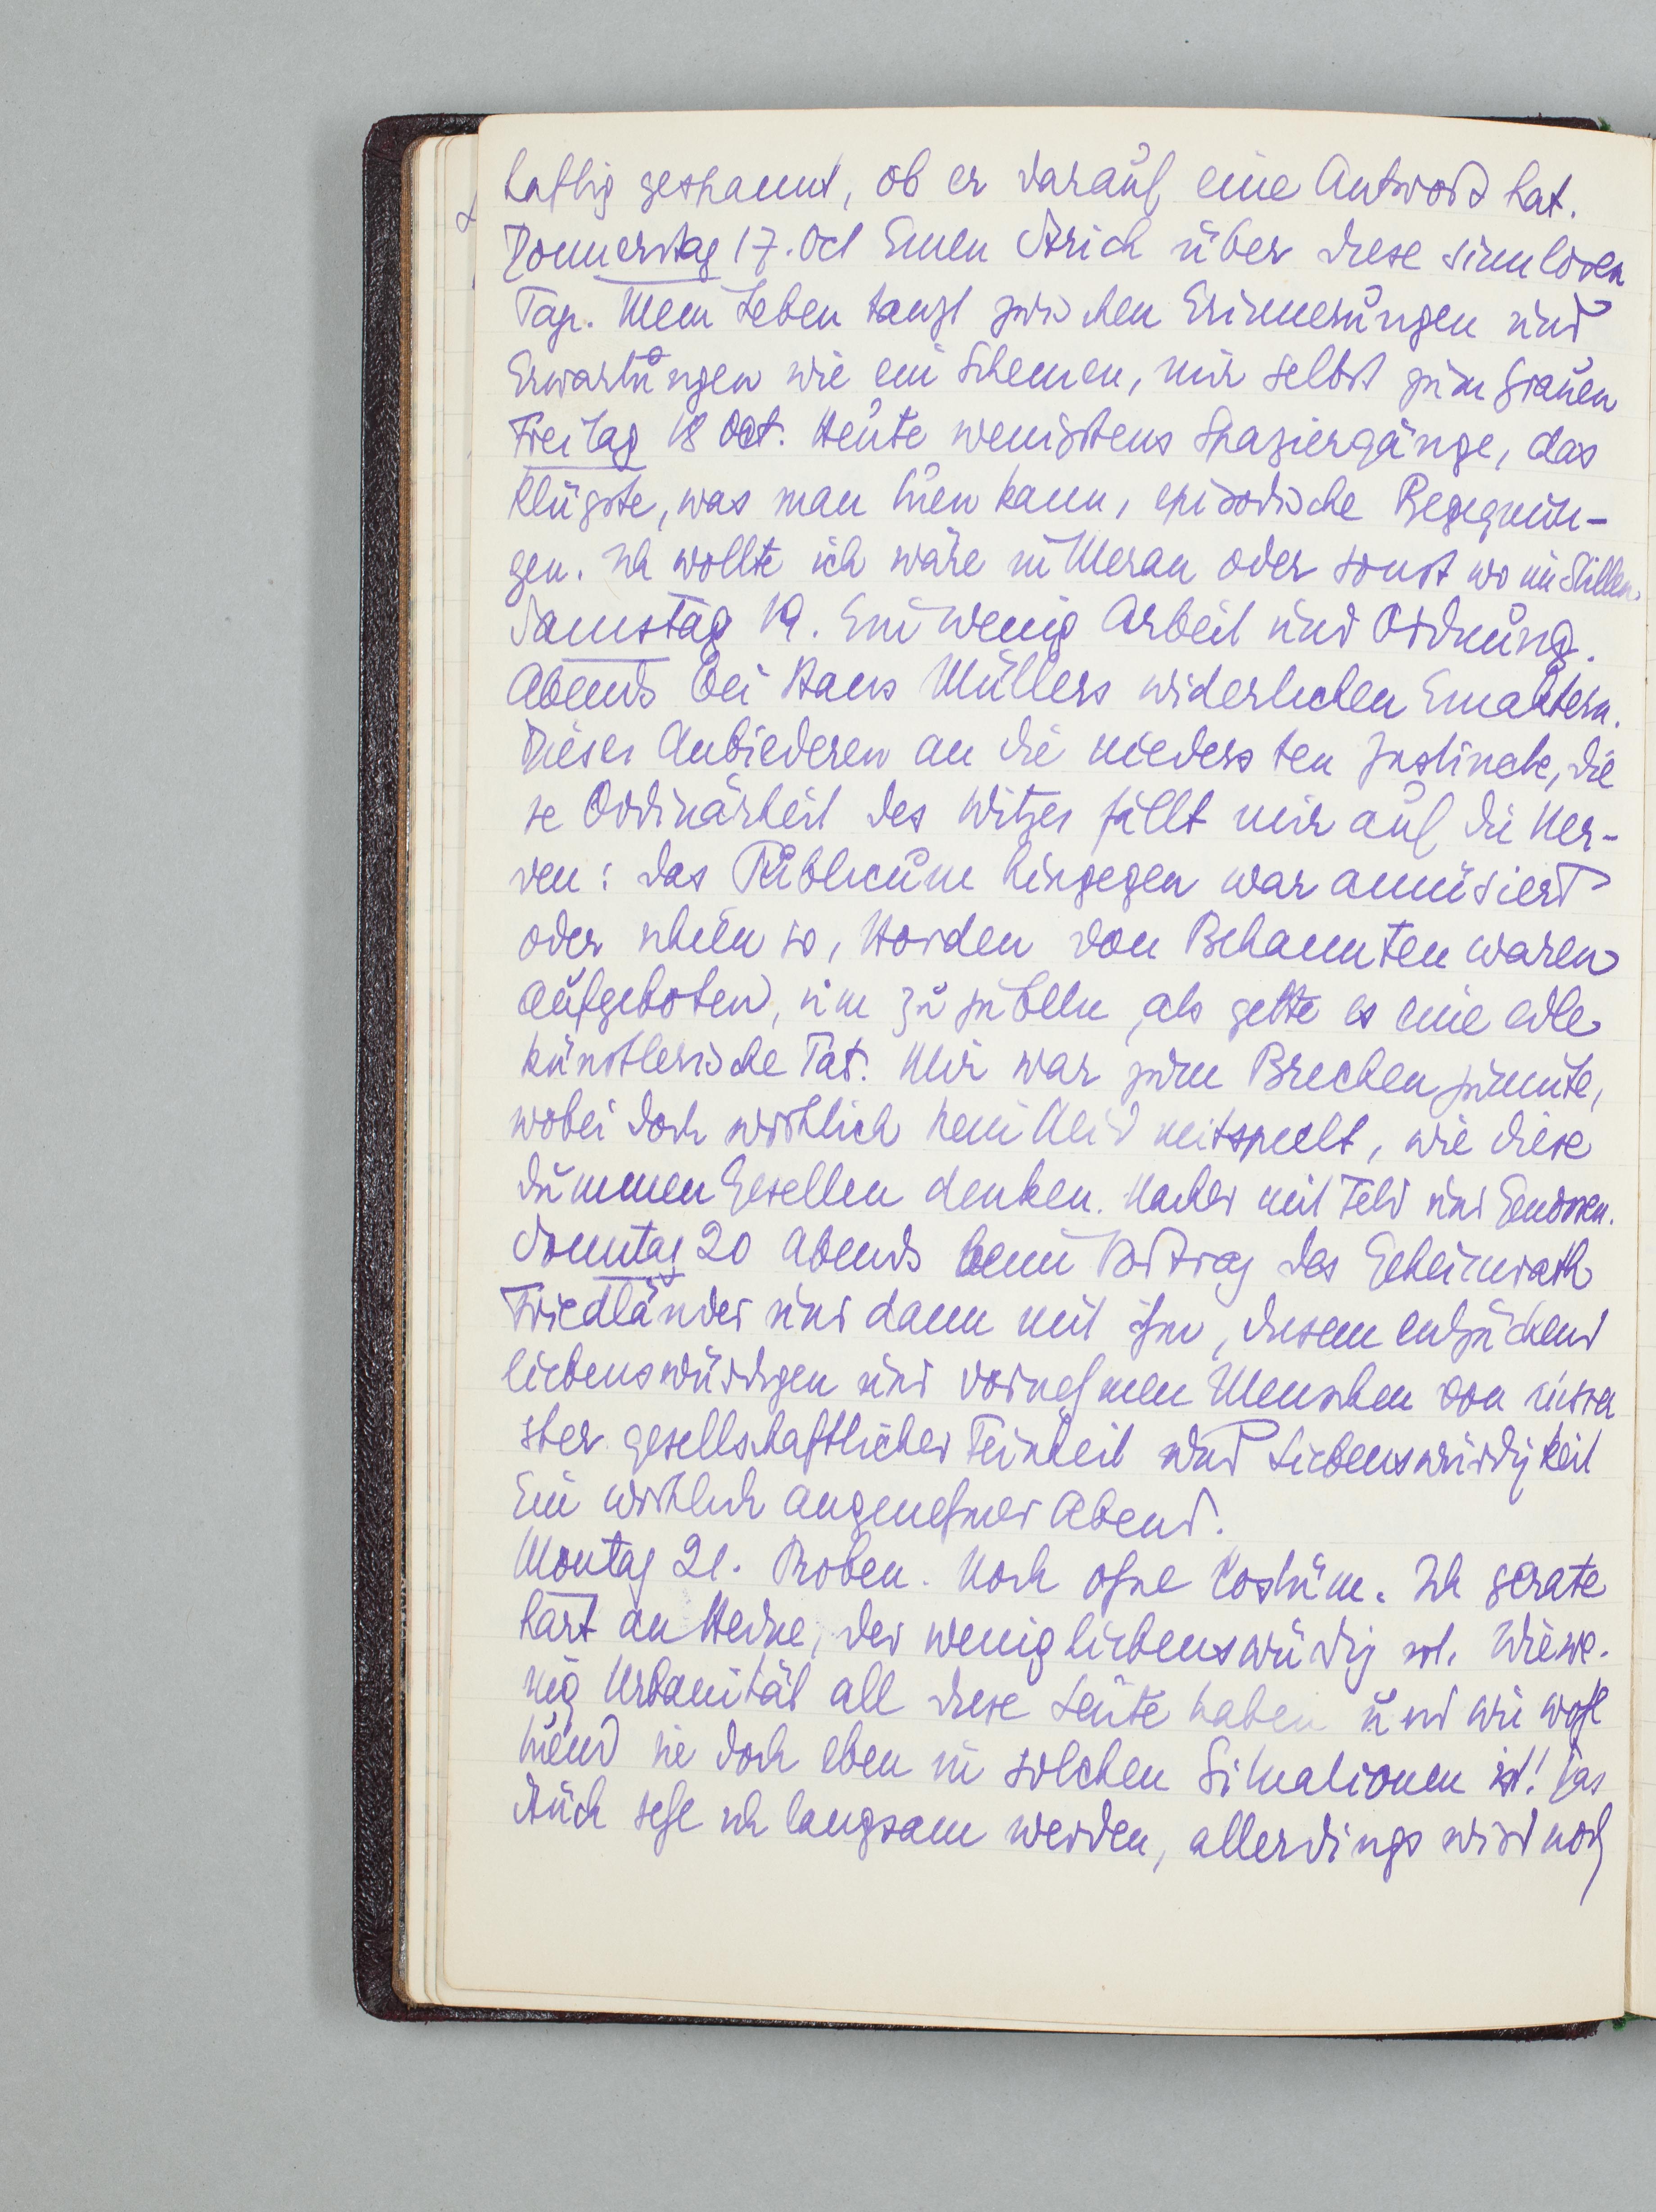 haftig gespannt, ob er darauf eine Antwort hat.
Donnerstag 17. Oct Einen Strich über diese sinnlosen
Tage. Mein Leben tanzt zwischen Erinnerungen und
Erwartungen wie ein Schemen, mir selbst zum Grauen
Freitag 18 Oct. Heute wenigstens Spaziergänge, das
Klügste, was man tuen kann, episodische Begegnun-
gen. Ich wollte ich wäre in Meran oder sonst wo im Stillen.
Samstag 19. Ein wenig Arbeit und Ordnung.
Abends bei Hans Müllers widerlichen Einaktern.
Dieses Anbiederen an die niedersten Instincte, die
se Ordinärheit des Witzes fällt mir auf die Ner-
ven: das Publicum hingegen war amüsiert
oder schien so, Horden von Bekannten waren
aufgeboten, um zu jubeln, als gelte es eine edle
künstlerische Tat. Mir war zum Brechen zumute,
wobei doch wirklich kein Neid mitspielt, wie diese
dummen Gesellen denken. Nachher mit Feld und Genossen.
Sonntag 20 Abends beim Vortrag des Geheimrath
Friedländer und dann mit ihm, diesem entzückend
liebenswürdigen und vornehmen Menschen von äusser
ster gesellschaftlicher Feinheit und Liebenswürdigkeit
Ein wirklich angenehmer Abend.
Montag 21. Proben. Noch ohne Costüm. Ich gerate
hart an Heine, der wenig liebenswürdig ist. Wie we-
nig Urbanität all diese Leute haben und wie wohl
tuend sie doch eben in solchen Situationen ist! Das
Stück sehe ich langsam werden, allerdings wird noch